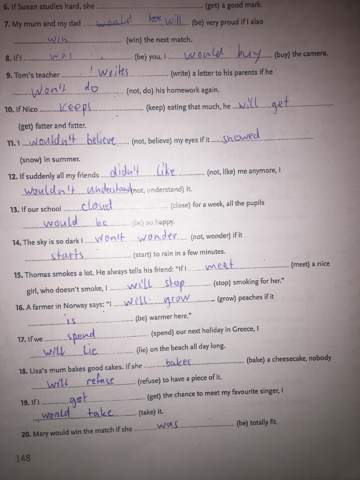 6. If Susan studies hard, she (get) a good mark.
7. My mum and my dad would be will (be) very proud if I also
win (win) the next match.
8. If I was (be) you, I would buy (buy) the camera.
9. Tom's teacher writes (write) a letter to his parents if he
won't do (not, do) his homework again.
10. If Nico keeps (keep) eating that much, he will get
(get) fatter and fatter.
11. I wouldn't believe (not, believe) my eyes if it snowed
(snow) in summer.
12. If suddenly all my friends didn't like (not, like) me anymore, I
wouldn't understand (not, understand) it.
13. If our school cloud (close) for a week, all the pupils
would be (be) so happy.
14. The sky is so dark I won't wonder (not, wonder) if it
starts (start) to rain in a few minutes.
15. Thomas smokes a lot. He always tells his friend: "If I meet (meet) a nice
girl, who doesn't smoke, I will stop (stop) smoking for her."
16. A farmer in Norway says: "I will grow (grow) peaches if it
is (be) warmer here."
17. If we spend (spend) our next holiday in Greece, I
will lie (lie) on the beach all day long.
18. Lisa's mum bakes good cakes. If she bakes (bake) a cheesecake, nobody
will refuse (refuse) to have a piece of it.
19. If I got (get) the chance to meet my favourite singer, I
would take (take) it.
20. Mary would win the match if she was (be) totally fit.
148